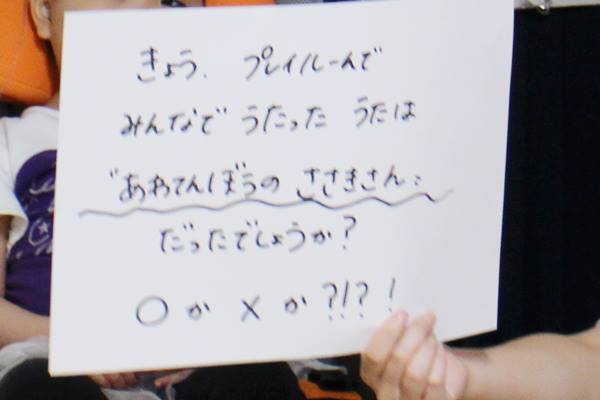 きょう、プレイルームで
みんなで うたった うたは
"あわてんぼうの ささきさん"
だったでしょうか?
○ か × か ?!?!